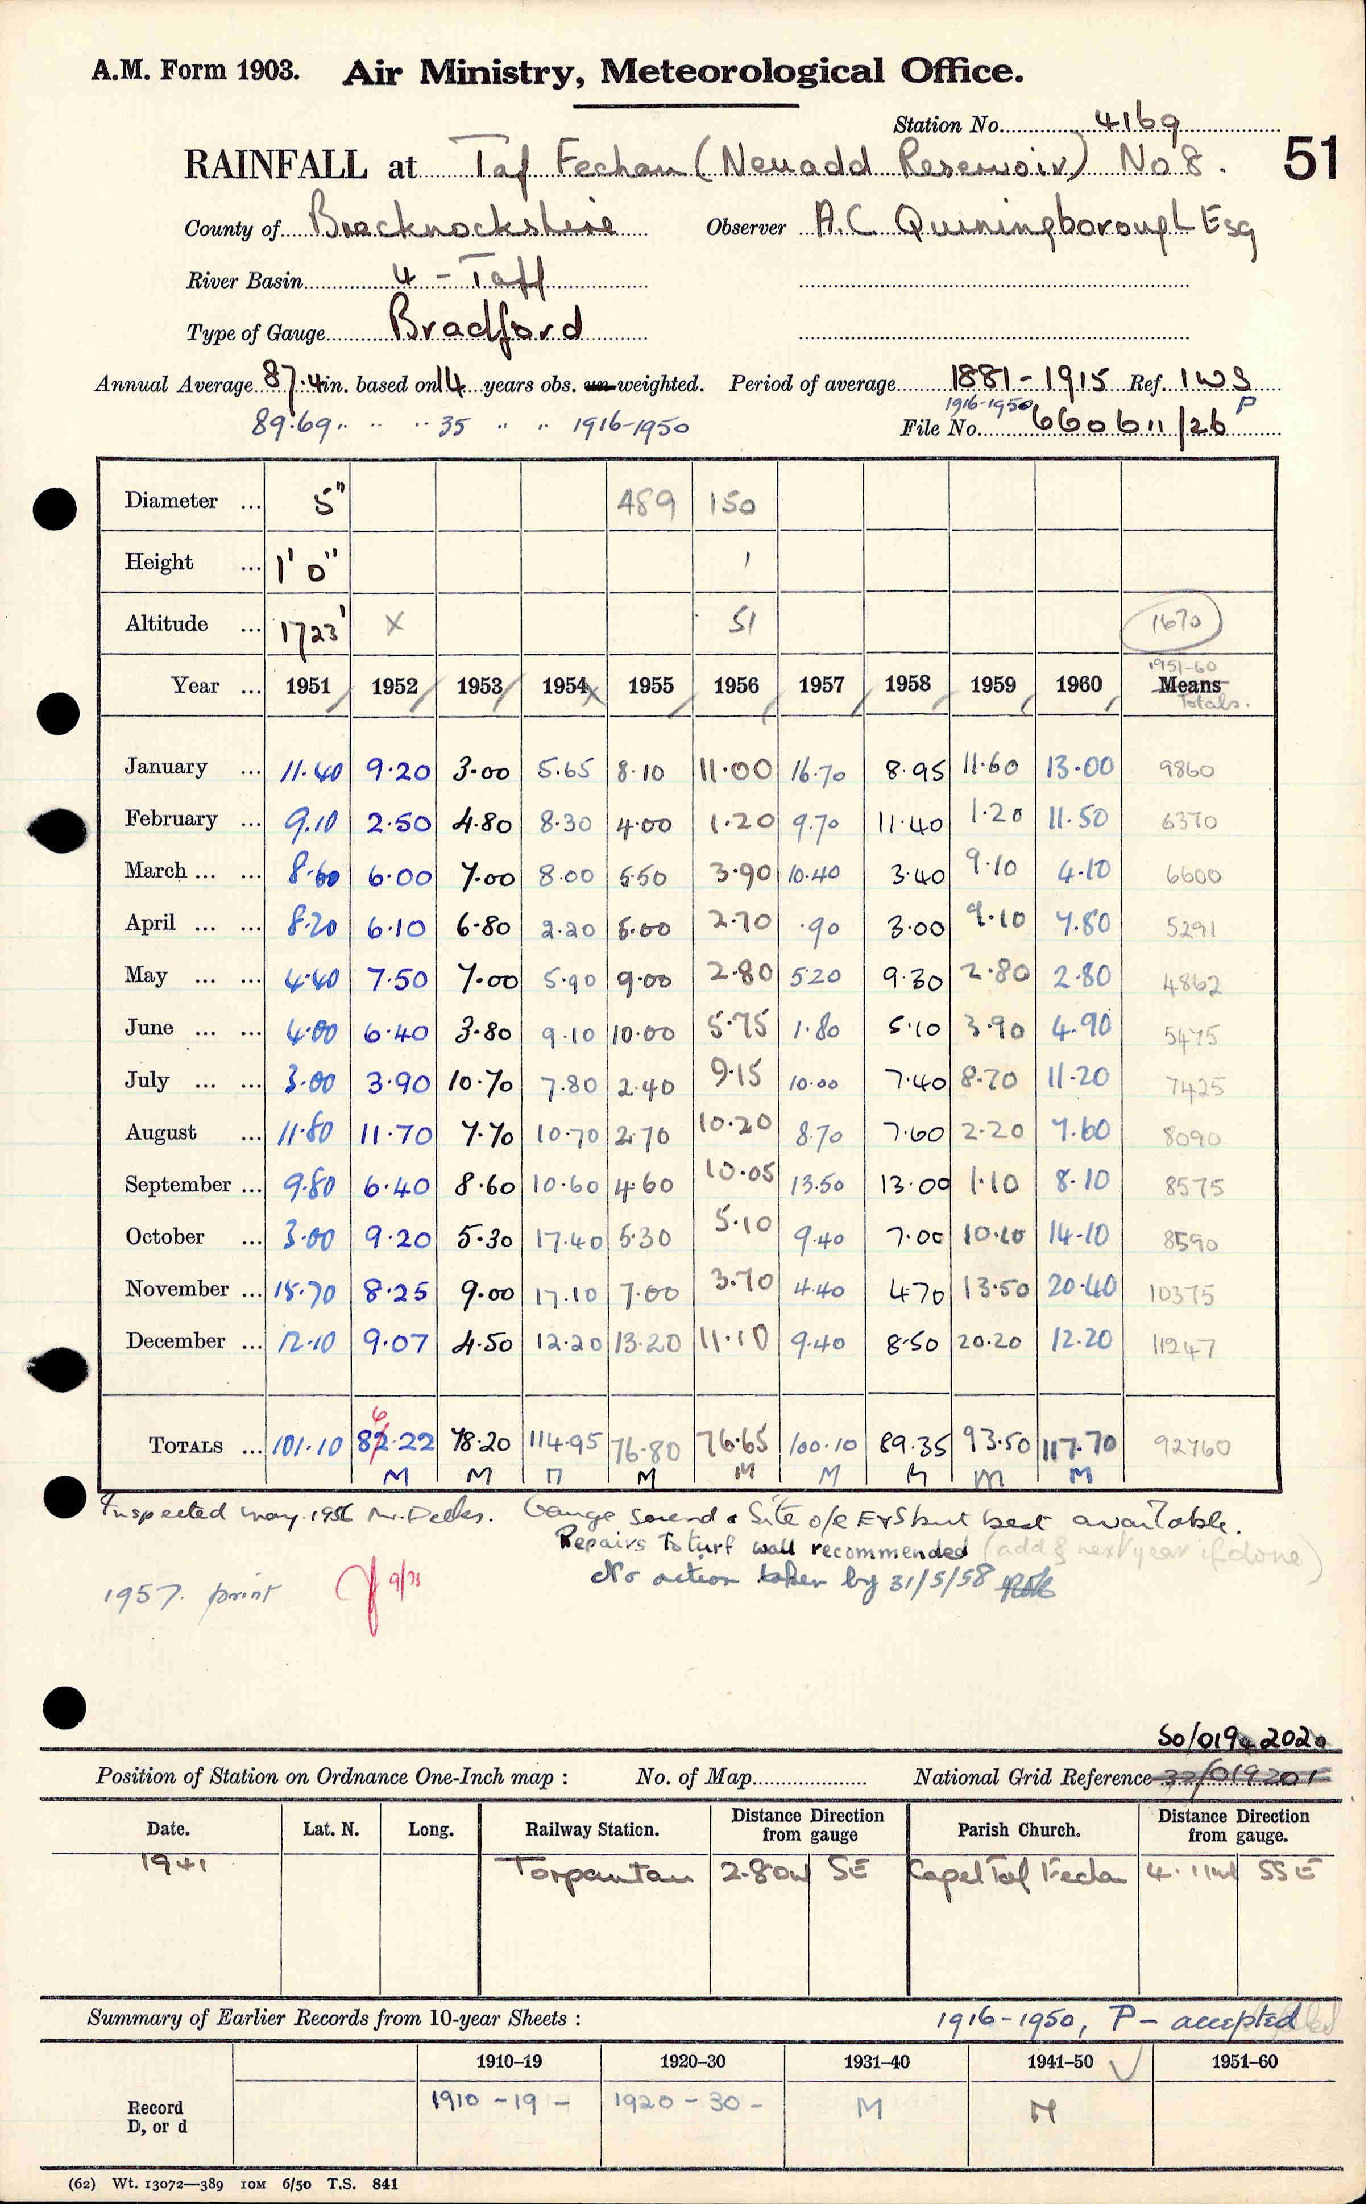 A.M. Form 1903. Air Ministry, Meteorological Office.
Station No. 4169
RAINFALL at Taf Fechan (Neuadd Reservoir) No 8. 51
County of Brecknockshire Observer A.C. Quiningborough Esq
River Basin 4 - Taff
Type of Gauge Bradford
Annual Average 87.4 in. based on 14 years obs. un weighted. Period of average 1881-1915 Ref. IWS
1916-1950 P
89.69 " " " 35 " " 1916-1950 File No. 660611/26
Diameter ... 5" 489 150
Height ... 1' 0" 1
Altitude ... 1723' X 51 1670
1951-60
Year ... 1951 1952 1953 1954 1955 1956 1957 1958 1959 1960 Means
Totals.
January ... 11.40 9.20 3.00 5.65 8.10 11.00 16.70 8.95 11.60 13.00 9860
February ... 9.10 2.50 4.80 8.30 4.00 1.20 9.70 11.40 1.20 11.50 6370
March ... ... 8.60 6.00 7.00 8.00 5.50 3.90 10.40 3.40 9.10 4.10 6600
April ... ... 8.20 6.10 6.80 2.20 5.00 2.70 .90 3.00 9.10 7.80 5291
May ... ... 4.40 7.50 7.00 5.90 9.00 2.80 5.20 9.30 2.80 2.80 4862
June ... ... 4.00 6.40 3.80 9.10 10.00 5.75 1.80 5.10 3.90 4.90 5475
July ... ... 3.00 3.90 10.70 7.80 2.40 9.15 10.00 7.40 8.70 11.20 7425
August ... 11.80 11.70 7.70 10.70 2.70 10.20 8.70 7.60 2.20 7.60 8090
September ... 9.80 6.40 8.60 10.60 4.60 10.05 13.50 13.00 1.10 8.10 8575
October ... 3.00 9.20 5.30 17.40 5.30 5.10 9.40 7.00 10.10 14.10 8590
November ... 15.70 8.25 9.00 17.10 7.00 3.70 4.40 4.70 13.50 20.40 10375
December ... 12.10 9.07 4.50 12.20 13.20 11.10 9.40 8.50 20.20 12.20 11247
6
TOTALS ... 101.10 82.22 78.20 114.95 76.80 76.65 100.10 89.35 93.50 117.70 92760
M M M M M M M M M
Inspected May 1956 Gauge sound & Site o/e E & S but best available.
Repairs to turf wall recommended (add § next year if done)
1957. print 9/73 No action taken by 31/5/58
SO/0194 2020
Position of Station on Ordnance One-Inch map : No. of Map National Grid Reference 32/019201
Date. Lat. N. Long. Railway Station. Distance Direction from gauge Parish Church. Distance Direction from gauge.
1941 Torpantau 2.80 SE Capel Taf Fecha 4.11 SSE
Summary of Earlier Records from 10-year Sheets : 1916-1950, P - accepted
1910–19 1920–30 1931–40 1941–50 1951–60
Record D, or d 1910 - 19 - 1920 - 30 - M M
(62) Wt. 13072—389 10M 6/50 T.S. 841